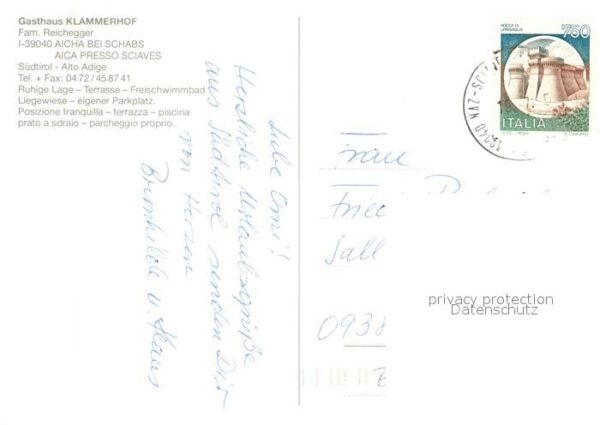 Gasthaus KLAMMERHOF
Fam. Reichegger
I-39040 AICHA BEI SCHABS
AICA PRESSO SCIAVES
Südtirol - Alto Adige
Tel. + Fax: 04 72 / 45 87 41
Ruhige Lage – Terrasse – Freischwimmbad
Liegewiese – eigener Parkplatz.
Posizione tranquilla – terrazza – piscina
prato a sdraio – parcheggio proprio.
Liebe Omi!
Herzliche Urlaubsgrüße
aus Südtirol senden Dir
von Herzen
Brunhilde u. Klaus
ROCCA DI
URBISAGLIA
750
ITALIA
39040 NAZ-SC
Frau
Frie
Sall
0938
privacy protection
Datenschutz